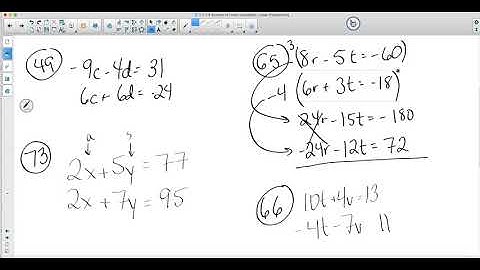 49
-9c - 4d = 31
6c + 6d = -24
73
2x + 5y = 77
2x + 7y = 95
65
3 (8r - 5t = -60)
-4 (6r + 3t = -18)
24r - 15t = -180
-24r - 12t = 72
66
10t + 4v = 13
-4t - 7v 11